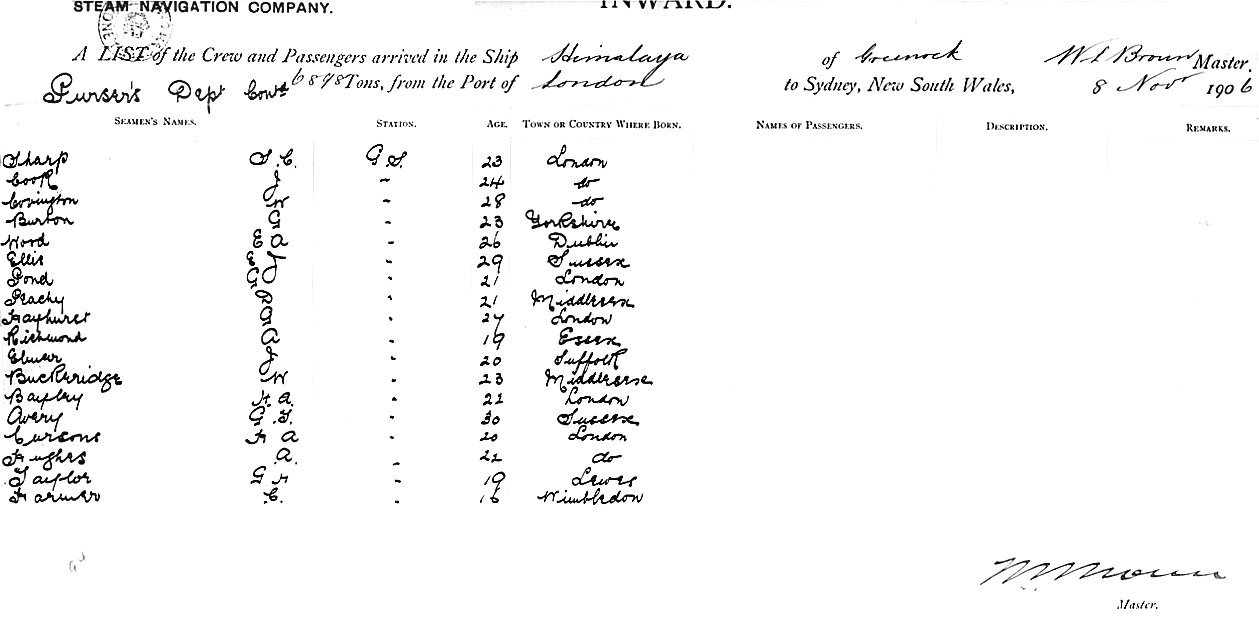 STEAM NAVIGATION COMPANY. INWARD.
A LIST of the Crew and Passengers arrived in the Ship Himalaya of Greenock W L Brown Master.
Purser's Dept Contd 6898 Tons, from the Port of London to Sydney, New South Wales, 8 Novr 1906
SEAMEN'S NAMES. STATION. AGE. TOWN OR COUNTRY WHERE BORN. NAMES OF PASSENGERS. DESCRIPTION. REMARKS.
Sharp S. C. G. S. 23 London
Cook J - 24 do
Covington W - 28 do
Burton G - 23 Yorkshire
Wood E A - 26 Dublin
Ellis E J - 29 Sussex
Pond G J - 21 London
Peachy - 21 Middlesex
Hayhurst G - 27 London
Richmond A - 19 Essex
Elmer J - 20 Suffolk
Buckeridge W - 23 Middlesex
Bayley H. A. - 22 London
Avery G. T. - 30 Sussex
Cursons H A - 20 London
Hughes A. - 22 do
Taylor G H - 19 Lewes
Farmer C. - 16 Wimbledon
Master.